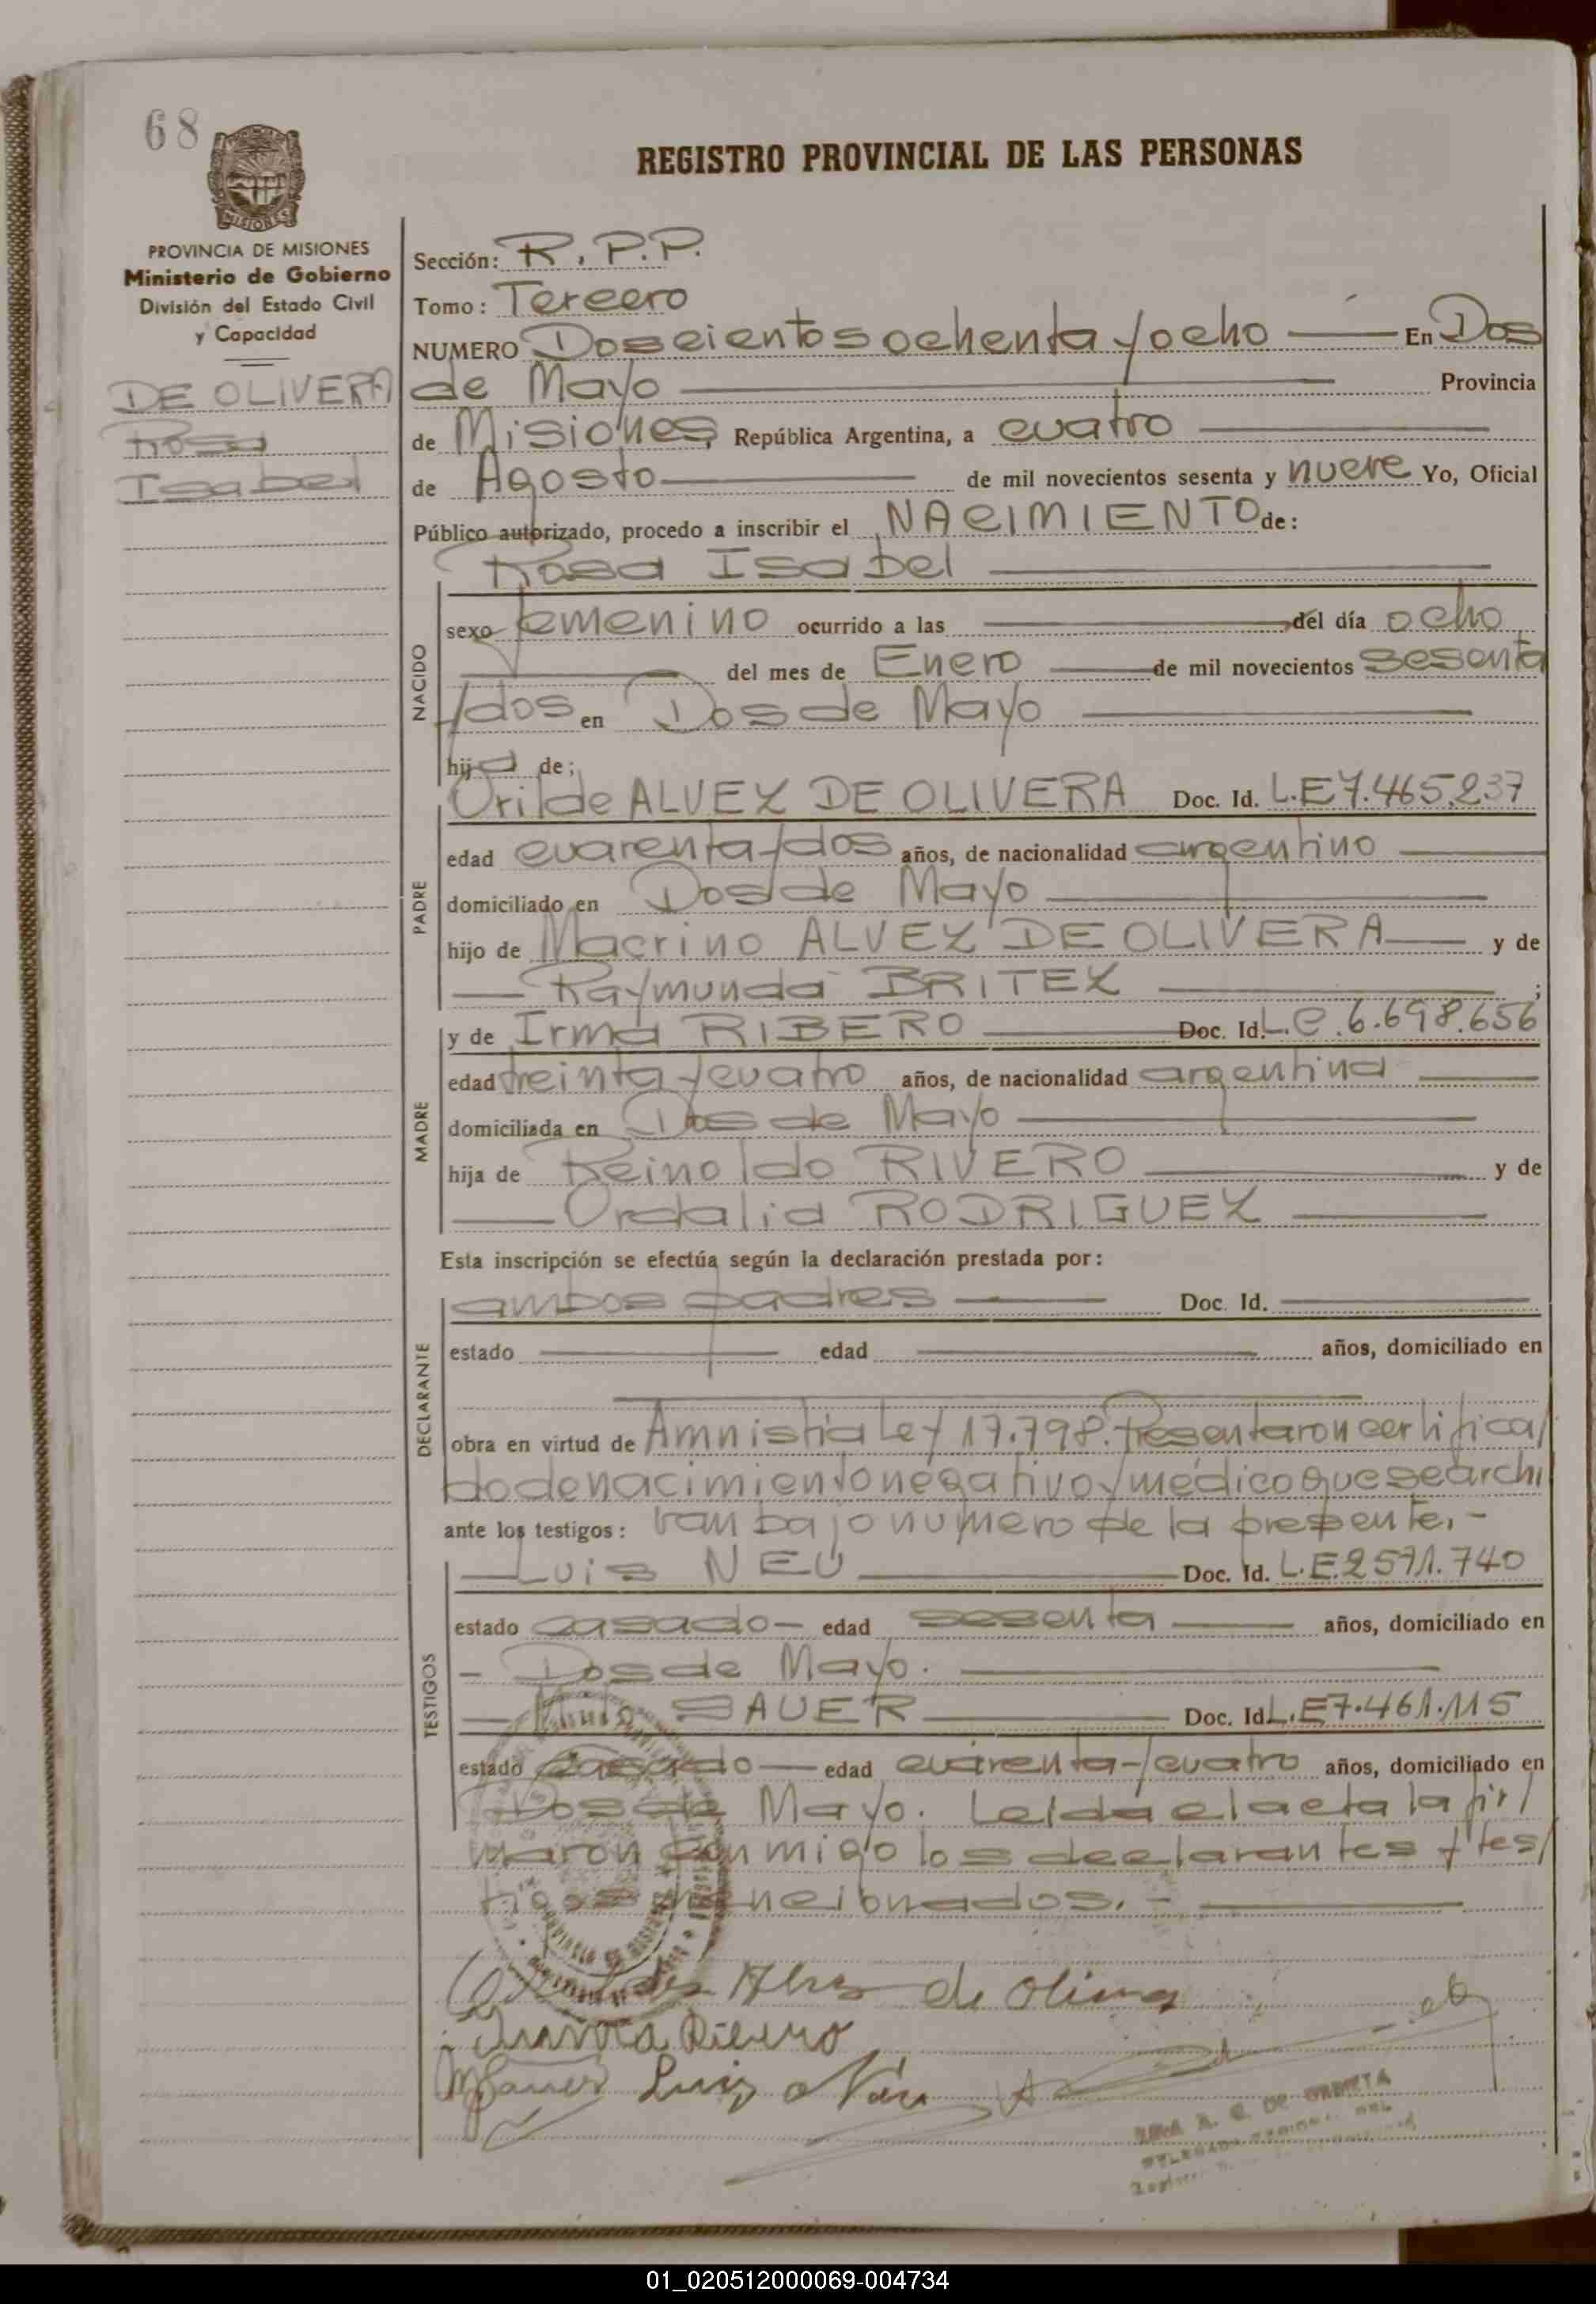 68
REGISTRO PROVINCIAL DE LAS PERSONAS
MISIONES
PROVINCIA DE MISIONES
Ministerio de Gobierno
División del Estado Civil
y Capacidad
DE OLIVERA
Rosa
Isabel
Sección: R.P.P.
Tomo: Tercero
NUMERO Doscientos ochenta y ocho — En Dos
de Mayo — Provincia
de Misiones, República Argentina, a cuatro —
de Agosto — de mil novecientos sesenta y nueve Yo, Oficial
Público autorizado, procedo a inscribir el NACIMIENTO de:
Rosa Isabel —
NACIDO
sexo femenino ocurrido a las — del día ocho
— del mes de Enero — de mil novecientos sesenta
y dos en Dos de Mayo —
hija de;
PADRE
Orilde ALVEZ DE OLIVERA Doc. Id. L.E 7.465.237
edad cuarenta y dos años, de nacionalidad argentino —
domiciliado en Dos de Mayo —
hijo de Macrino ALVEZ DE OLIVERA — y de
— Raymunda BRITEZ — ;
MADRE
y de Irma RIBERO — Doc. Id. L.C.6.698.656
edad treinta y cuatro años, de nacionalidad argentina —
domiciliada en Dos de Mayo —
hija de Reinoldo RIVERO — y de
— Ordalia RODRIGUEZ —
Esta inscripción se efectúa según la declaración prestada por:
DECLARANTE
ambos padres — Doc. Id. —
estado — edad — años, domiciliado en
—
obra en virtud de Amnistia Ley 17.798. Presentaron certifica/
do de nacimiento negativo y médico que se archi
ante los testigos: van bajo numero de la presente.-
TESTIGOS
— Luis NEU — Doc. Id. L.E.2571.740
estado casado — edad sesenta — años, domiciliado en
- Dos de Mayo. —
— SAUER — Doc. Id L.E7.461.115
estado casado — edad cuarenta y cuatro años, domiciliado en
Dos de Mayo. Leida el acta la fir/
maron conmigo los declarantes y tes/
tigos mencionados.- —
de Olivera
Ribero
Luis
DE
01_020512000069-004734